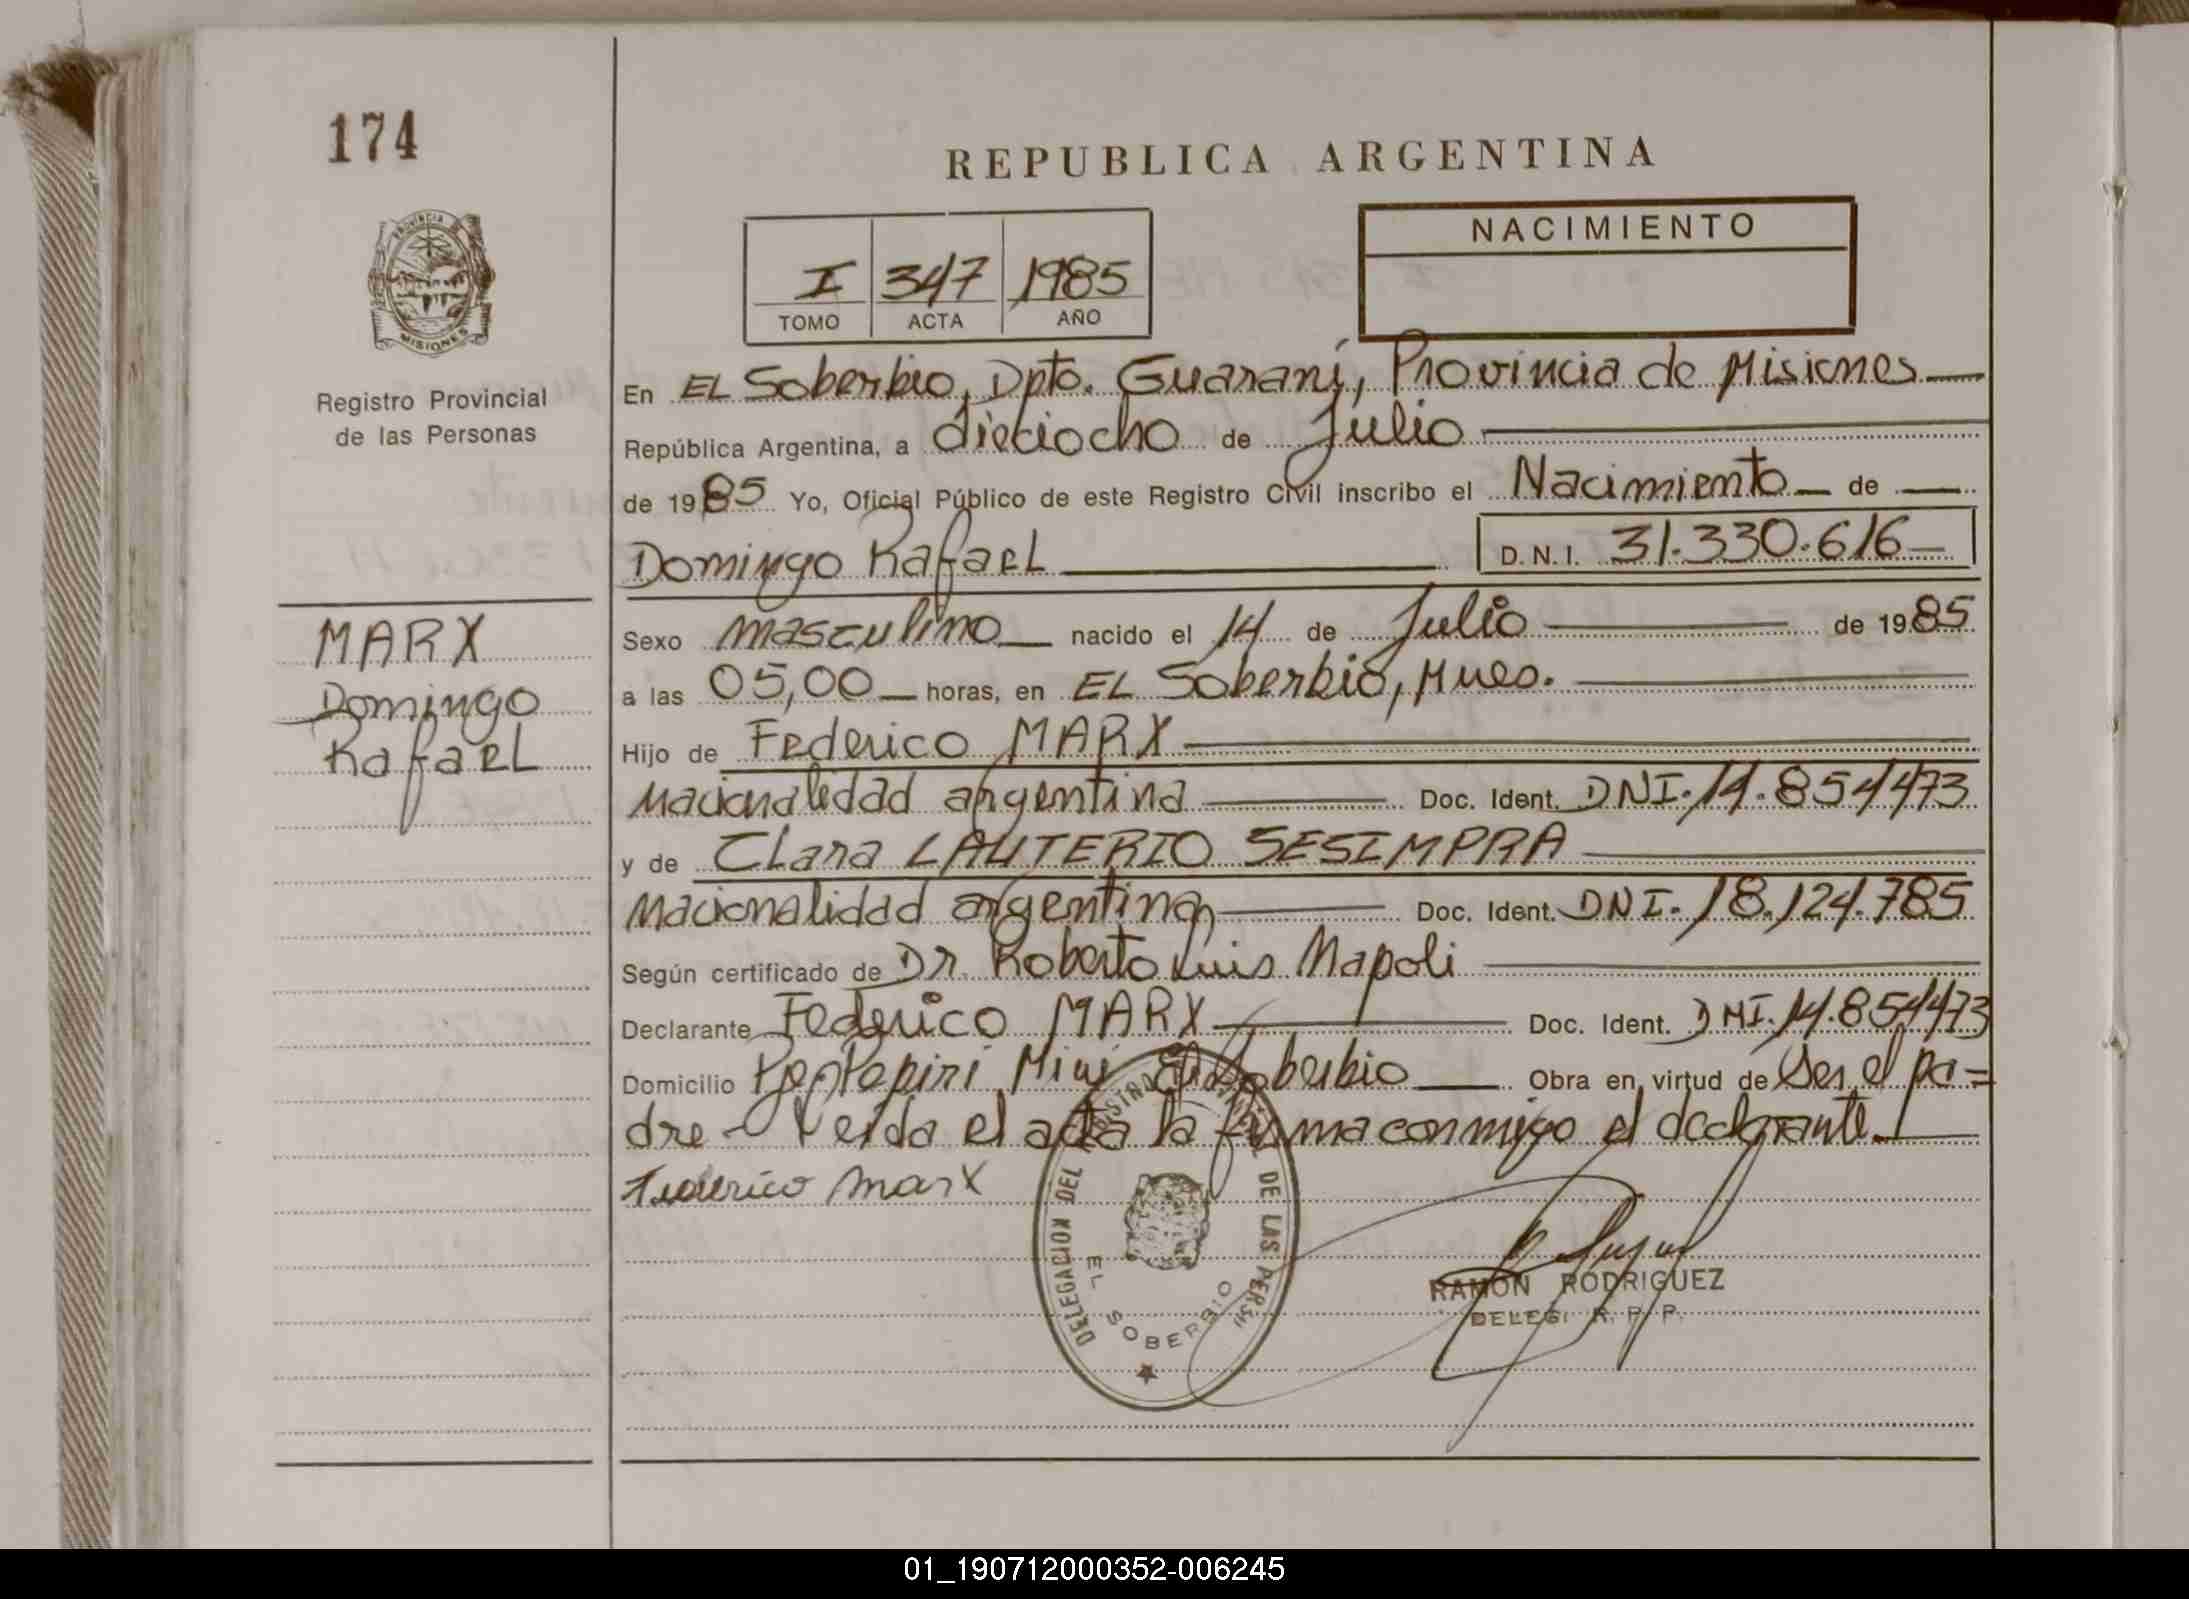 174
PROVINCIA DE
MISIONES
Registro Provincial
de las Personas
MARX
Domingo
Rafael
REPUBLICA ARGENTINA
I 347 1985
TOMO ACTA AÑO
NACIMIENTO
En EL Soberbio, Dpto. Guaraní, Provincia de Misiones
República Argentina, a dieciocho de Julio
de 1985 Yo, Oficial Público de este Registro Civil inscribo el Nacimiento de
Domingo Rafael D.N.I. 31.330.616
Sexo masculino nacido el 14 de Julio de 1985
a las 05,00 horas, en EL Soberbio, Mnes.
Hijo de Federico MARX
Nacionalidad argentina Doc. Ident. DNI. 14.854473
y de Clara LAUTERIO SESIMPRA
Nacionalidad argentina Doc. Ident. DNI. 18.124.785
Según certificado de Dr. Roberto Luis Napoli
Declarante Federico MARX Doc. Ident. DNI. 14.854473
Domicilio Pepiri Mini El Soberbio Obra en virtud de Ser el pa=
dre - Leida el acta la firma conmigo el declarante.
Federico Marx
DELEGACION DEL REGISTRO PROVINCIAL DE LAS PERS.
EL SOBERBIO
RAMON RODRIGUEZ
DELEG. R. P. P.
01_190712000352-006245